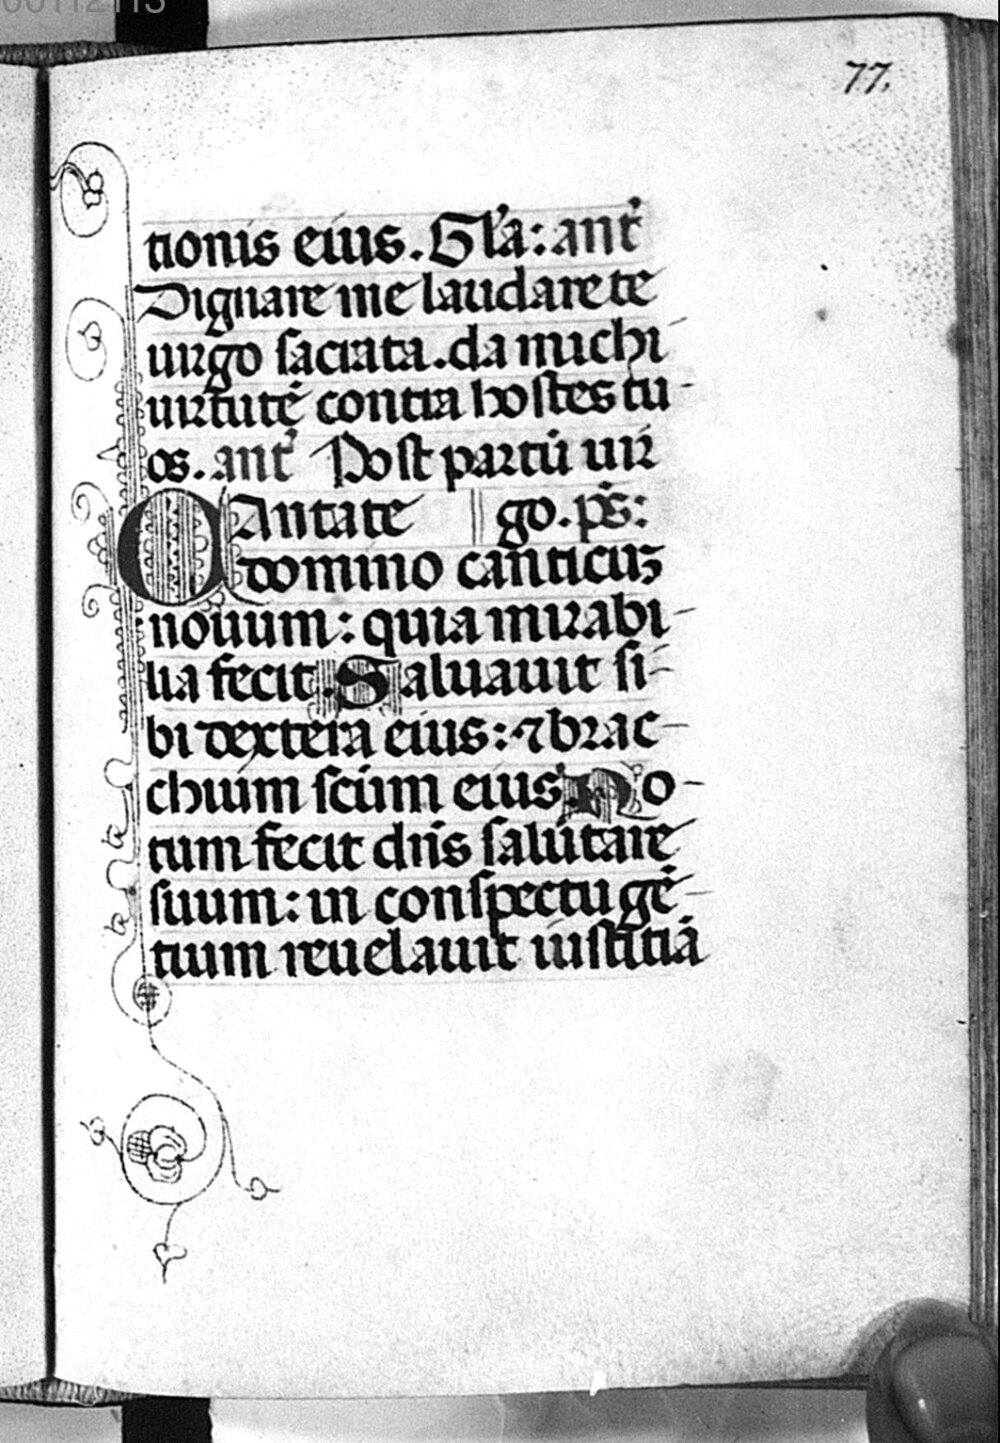 00112113
77.
tionis eius. Gl'a: ant'
Dignare me laudare te
uirgo sacrata. da michi
uirtutē contra hostes tu-
os. ant' Post partū uir
Cantate || go. ps̄:
domino canticuʒ
nouum: quia mirabi-
lia fecit. Saluauit si-
bi dextera eius: ⁊ brac-
chium scūm eius. No-
tum fecit dn̄s salutare
suum: in conspectu gē-
tium reuelauit iustitiā